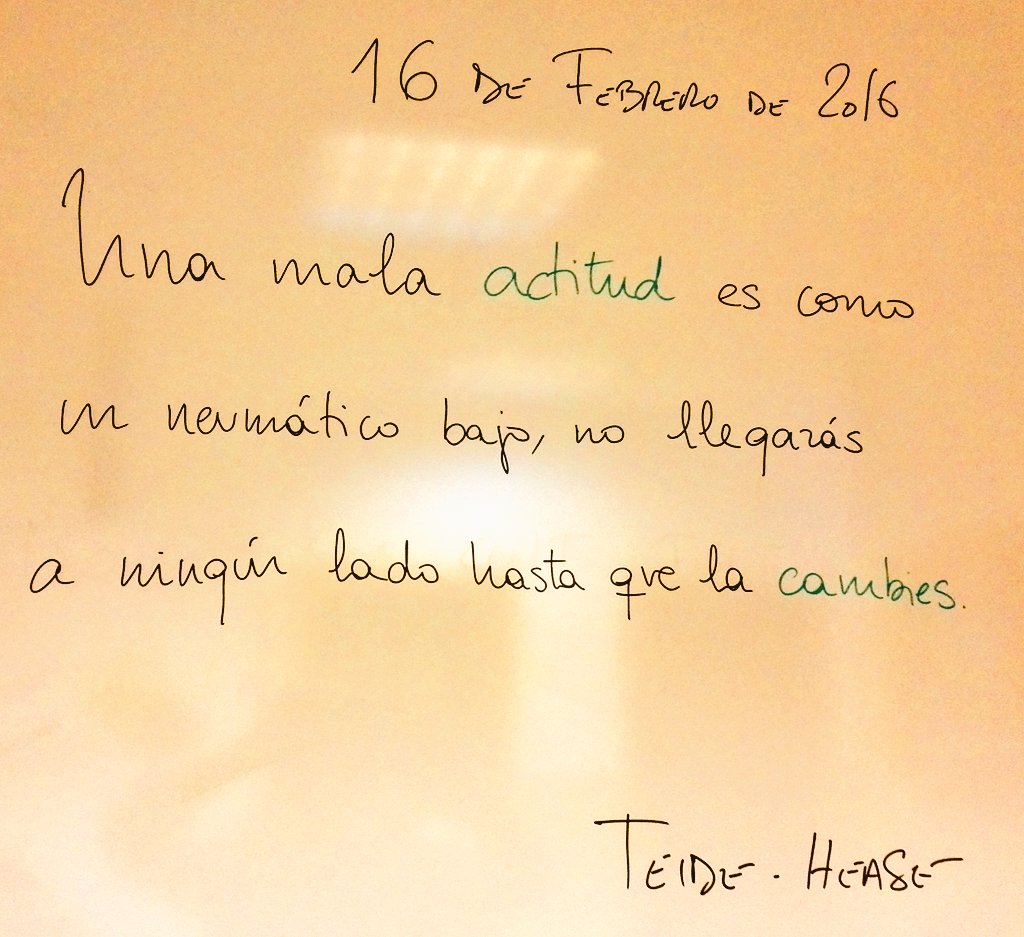 16 DE FEBRERO DE 2016
Una mala actitud es como
un neumático bajo, no llegarás
a ningún lado hasta que la cambies.
TEIDE. HEASE